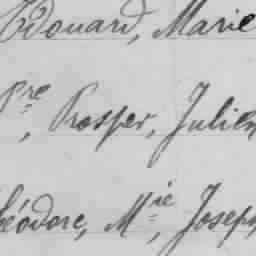 Edouard, Marie
Pre, Prosper, Julien
héodore, Mie, Joseph